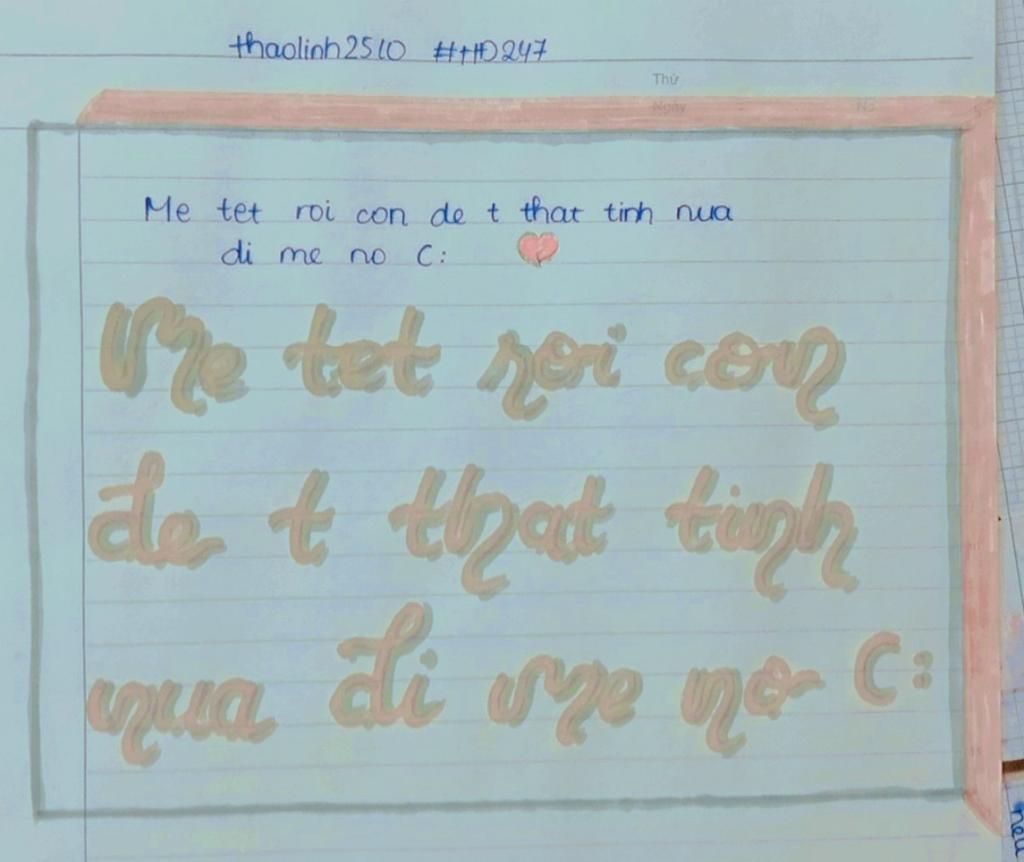 thaolinh2510 #HĐ247
Thứ
Ngày No
Me tet roi con de t that tinh nua
di me no C:
Me tet roi con
de t that tinh
nua di me no C: